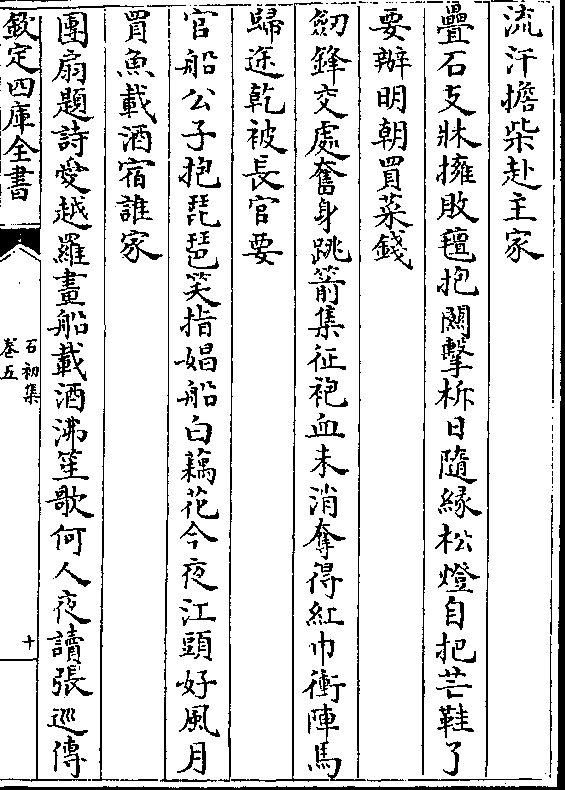 流汗擔柴赴主家
疊石支牀擁敗氊抱關擊柝日隨緣松燈自把芒鞋了
要辦明朝買菜錢
劒鋒交處奮身跳箭集征袍血未消奪得紅巾衝陣馬
歸途乾被長官要
官船公子抱琵琶笑指娼船白藕花今夜江頭好風月
買魚載酒宿誰家
團扇題詩愛越羅畫船載酒沸笙歌何人夜讀張巡傳
欽定四庫全書
石初集
卷五
十